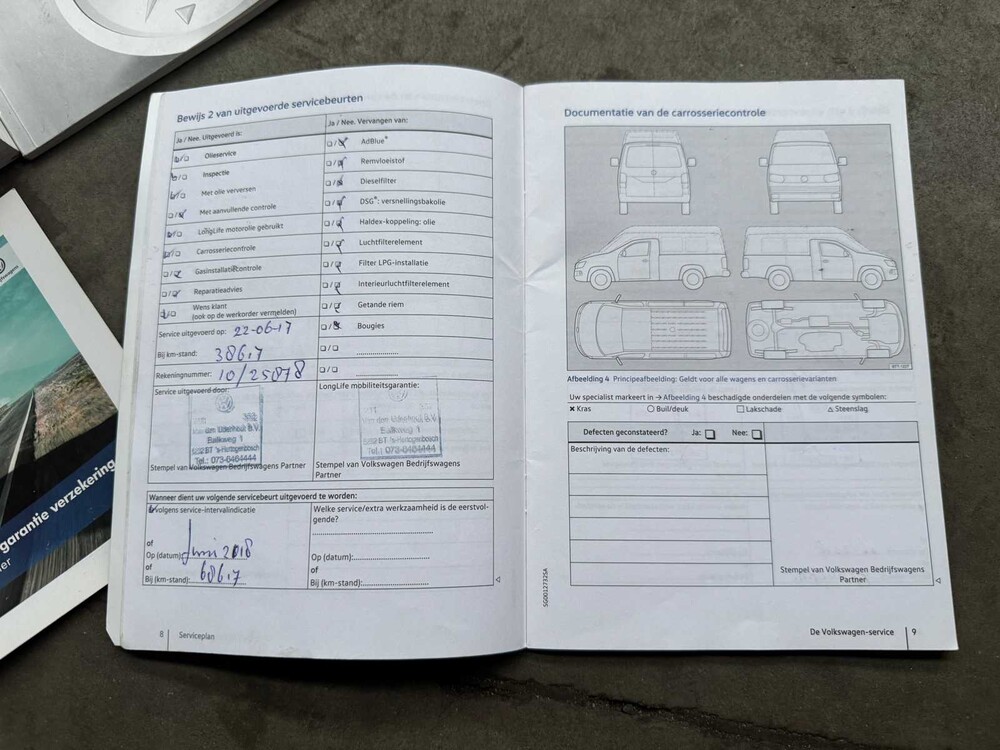 Bewijs 2 van uitgevoerde servicebeurten
Ja / Nee. Uitgevoerd is:
Olieservice
Inspectie
Met olie verversen
Met aanvullende controle
LongLife motorolie gebruikt
Carrosseriecontrole
Gasinstallatiecontrole
Reparatieadvies
Wens klant
(ook op de werkorder vermelden)
Service uitgevoerd op: 22-06-17
Bij km-stand: 38617
Rekeningnummer: 10/25878
Service uitgevoerd door:
Van den Udenhout B.V.
Balkweg 1
5232 BT 's-Hertogenbosch
Tel.: 073-6464444
Stempel van Volkswagen Bedrijfswagens Partner
Ja / Nee. Vervangen van:
AdBlue®
Remvloeistof
Dieselfilter
DSG®: versnellingsbakolie
Haldex-koppeling: olie
Luchtfilterelement
Filter LPG-installatie
Interieurluchtfilterelement
Getande riem
Bougies
LongLife mobiliteitsgarantie:
Van den Udenhout B.V.
Balkweg 1
5232 BT 's-Hertogenbosch
Tel.: 073-6464444
Stempel van Volkswagen Bedrijfswagens
Partner
Wanneer dient uw volgende servicebeurt uitgevoerd te worden:
volgens service-intervalindicatie
of
Op (datum): Juni 2018
of
Bij (km-stand): 68617
Welke service/extra werkzaamheid is de eerstvol-
gende?
Op (datum):
of
Bij (km-stand):
8 Serviceplan
Documentatie van de carrosseriecontrole
Afbeelding 4 Principeafbeelding: Geldt voor alle wagens en carrosserievarianten
Uw specialist markeert in → Afbeelding 4 beschadigde onderdelen met de volgende symbolen:
Kras Buil/deuk Lakschade Steenslag
Defecten geconstateerd? Ja: Nee:
Beschrijving van de defecten:
Stempel van Volkswagen Bedrijfswagens
Partner
SG0012732SA
De Volkswagen-service 9
garantie verzekering